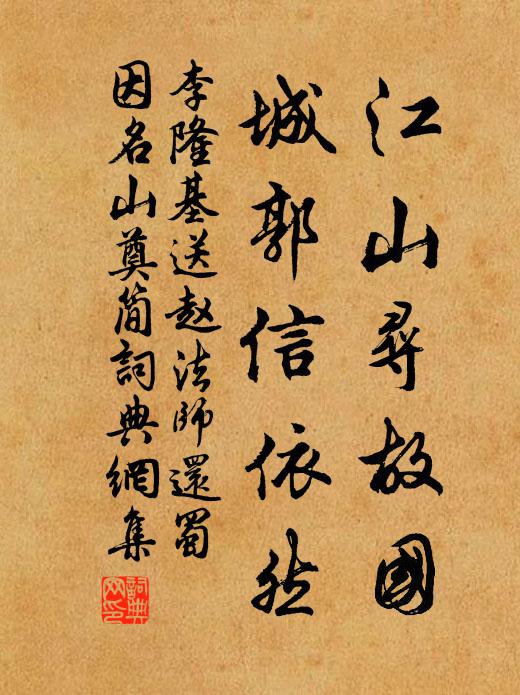 江山尋故國
城郭信依然
李隆基送赵法師還蜀
因名山奠简詞典網集
詞典
网印